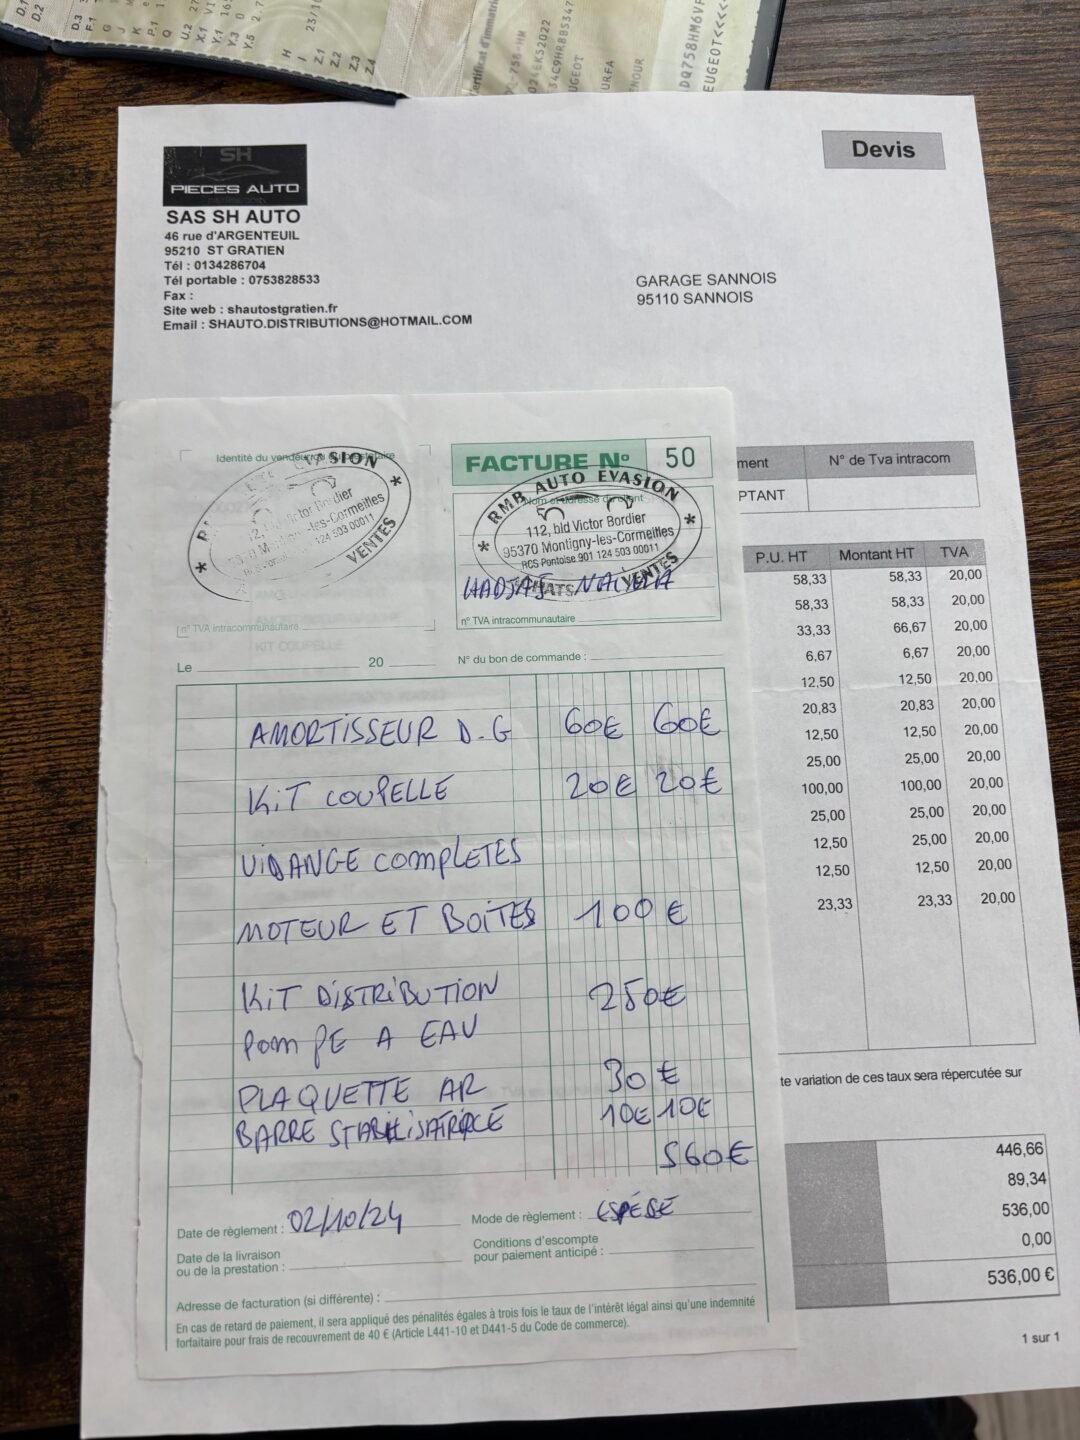 D.1
D.2
D.3
F.1
G
J
K
P.1
Q
U.2
X.1
Y.1
Y.3
Y.5
H
I
Z.1
Z.2
Z.3
Z.4
DQ758HM6VF
EUGEOT<<<<
Devis
SH
PIECES AUTO
SAS SH AUTO
46 rue d'ARGENTEUIL
95210 ST GRATIEN
Tél : 0134286704
Tél portable : 0753828533
Fax :
Site web : shautostgratien.fr
Email : SHAUTO.DISTRIBUTIONS@HOTMAIL.COM
GARAGE SANNOIS
95110 SANNOIS
ment N° de Tva intracom
PTANT
P.U. HT Montant HT TVA
58,33 58,33 20,00
58,33 58,33 20,00
33,33 66,67 20,00
6,67 6,67 20,00
12,50 12,50 20,00
20,83 20,83 20,00
12,50 12,50 20,00
25,00 25,00 20,00
100,00 100,00 20,00
25,00 25,00 20,00
12,50 25,00 20,00
12,50 12,50 20,00
23,33 23,33 20,00
te variation de ces taux sera répercutée sur
446,66
89,34
536,00
0,00
536,00 €
1 sur 1
Identité du vendeur ou du prestataire
EVASION
Victor Bordier
Montigny-les-Cormeilles
124 503 00011
VENTES
FACTURE N° 50
Nom et adresse du client
RMB AUTO EVASION
112, bld Victor Bordier
95370 Montigny-les-Cormeilles
RCS Pontoise 901 124 503 00011
ACHATS VENTES
HADJAJ
n° TVA intracommunautaire
n° TVA intracommunautaire
Le 20
N° du bon de commande :
AMORTISSEUR D.G 60€ 60€
KIT COUPELLE 20€ 20€
VIDANGE COMPLETES
MOTEUR ET BOITES 100€
KIT DISTRIBUTION 250€
POMPE A EAU
PLAQUETTE AR 30€
BARRE STABILISATRICE 10€ 10€
560€
Date de règlement : 02/10/24
Mode de règlement : ESPÉSE
Date de la livraison
ou de la prestation :
Conditions d'escompte
pour paiement anticipé :
Adresse de facturation (si différente) :
En cas de retard de paiement, il sera appliqué des pénalités égales à trois fois le taux de l'intérêt légal ainsi qu'une indemnité
forfaitaire pour frais de recouvrement de 40 € (Article L441-10 et D441-5 du Code de commerce).